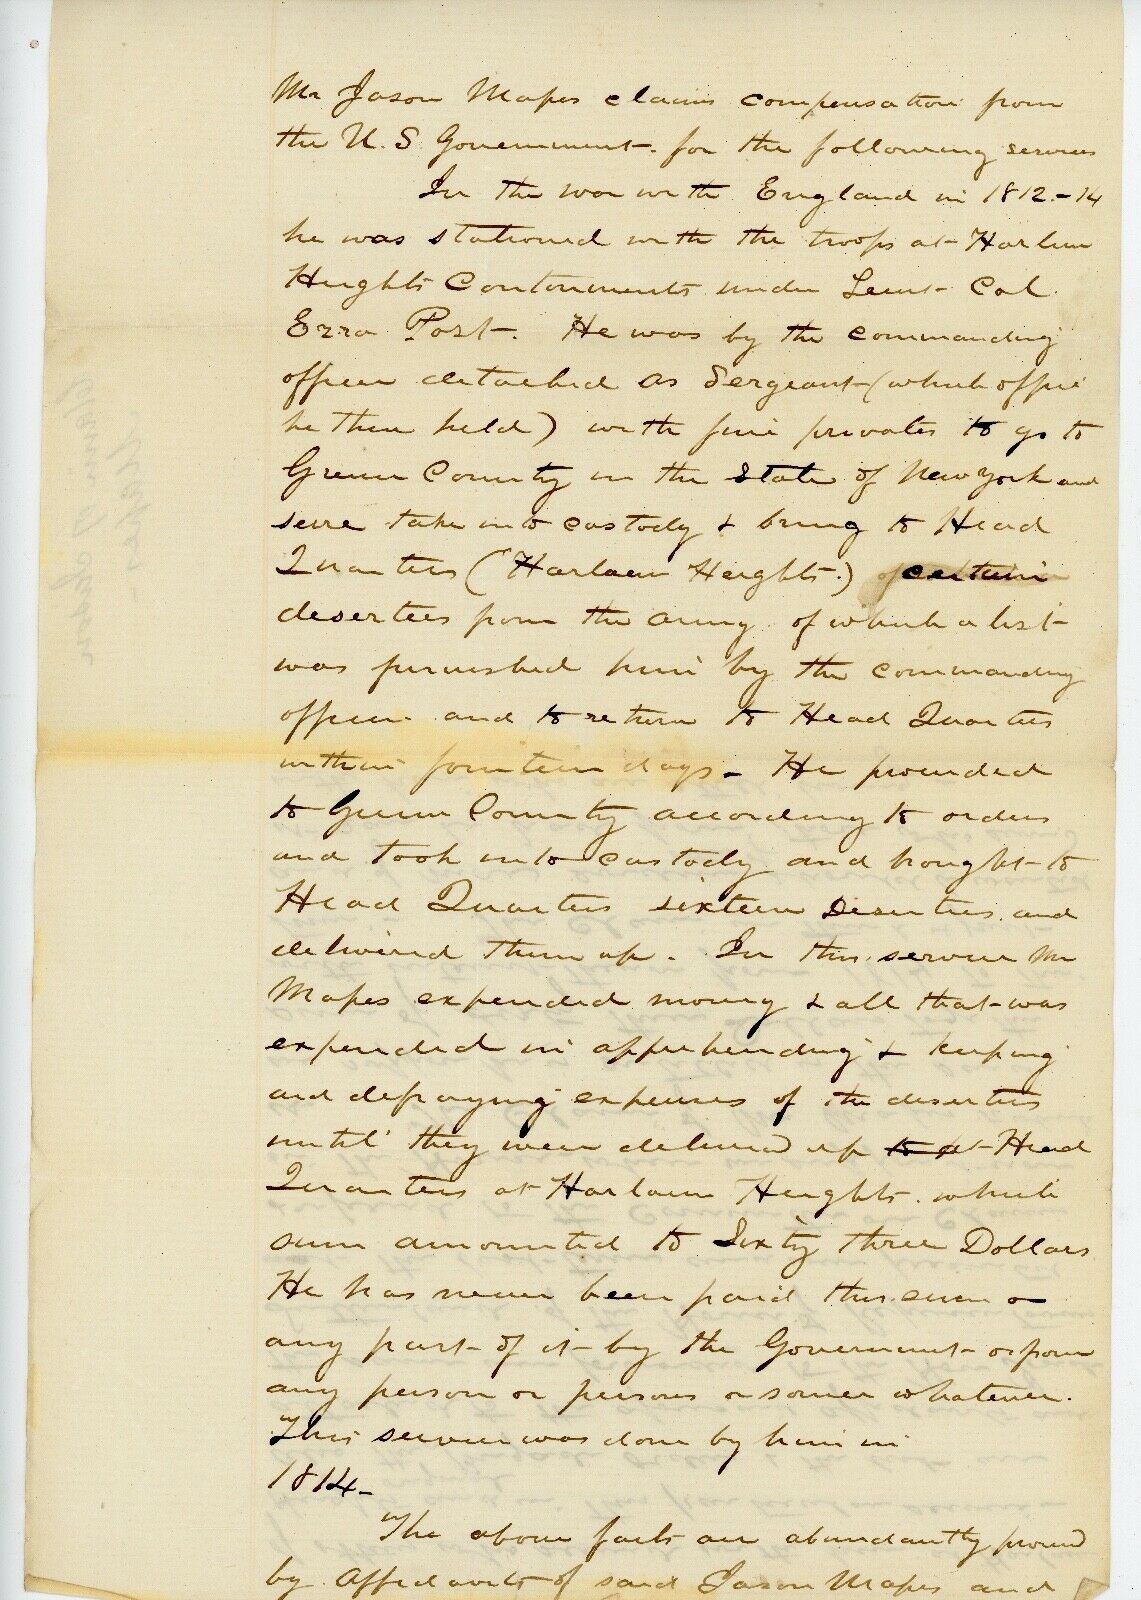 Mr Jason Mapes claims compensation from
the U. S Government. for the following services
In the war with England in 1812.-14
he was stationed with the troops at Harlem
Heights Cantonments under Leiut Col.
Ezra Post. He was by the commanding
officer detached as Sergeant (which office
he then held) with five privates to go to
Green County in the State of New York and
seize take into custody & bring to Head
Quarters (Harlaem Heights.) certain
deserters from the army of which a list
was furnished him by the commanding
officer and to return to Head Quarters
within fourteen days. He proceeded
to Green County according to orders
and took into custody and brought to
Head Quarters sixteen Deserters and
delivered them up. In this service Mr
Mapes expended money & all that was
expended in apprehending & keeping
and defraying expenses of the deserters
until they were delivered up to at Head
Quarters at Harlaem Heights. which
sum amounted to Sixty three Dollars
He has never been paid this sum or
any part of it by the Government or from
any person or persons or source whatever.
This service was done by him in
1814-
The above facts are abundantly proved
by Affidavits of said Jason Mapes and